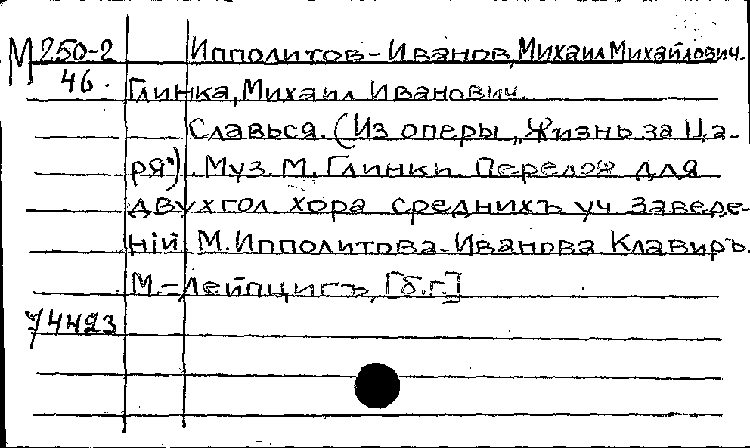 М 250-2 Ипполитов-Иванов, Михаил Михайлович.
46. Глинка, Михаил Иванович.
Славься. (Из оперы „Жизнь за Ца-
ря“). Муз. М. Глинки. Перелож для
двухгол. хора среднихъ уч. заведе-
ній М. Ипполитова-Иванова. Клавиръ.
М.-Лейпцигъ, [б.г.]
74493